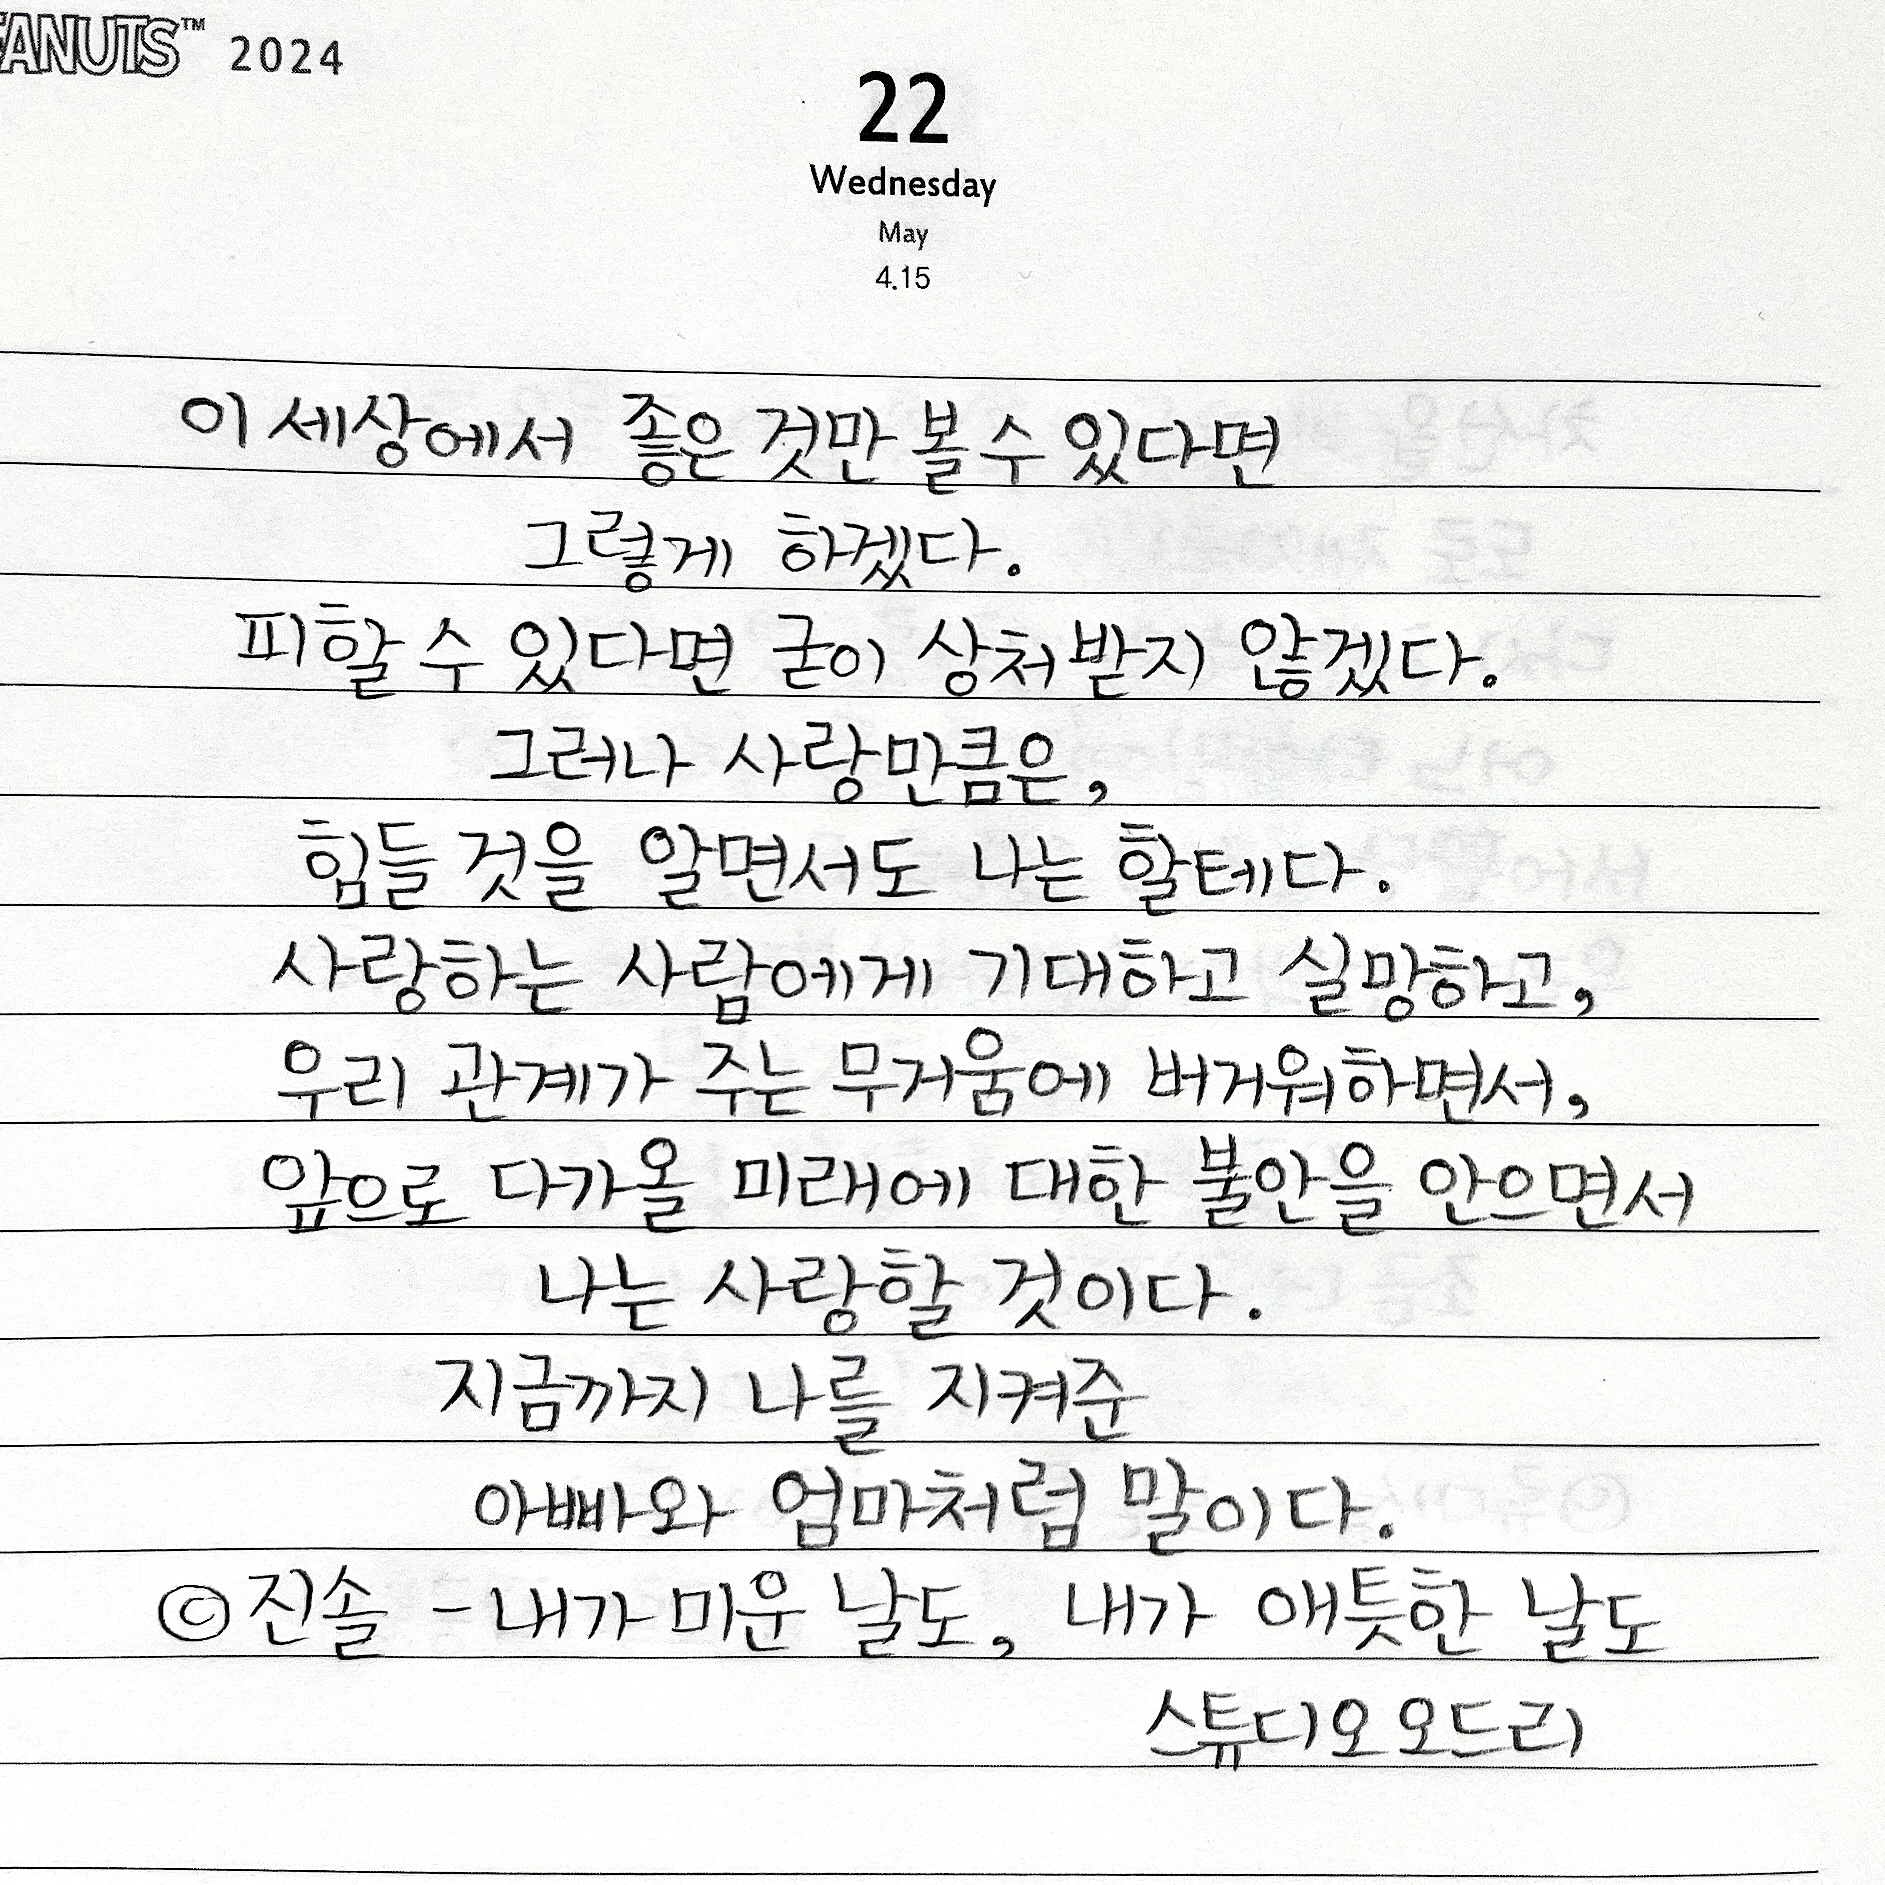 PEANUTS™ 2024
22
Wednesday
May
4.15
이 세상에서 좋은 것만 볼 수 있다면
그렇게 하겠다.
피할 수 있다면 굳이 상처받지 않겠다.
그러나 사랑만큼은,
힘들 것을 알면서도 나는 할테다.
사랑하는 사람에게 기대하고 실망하고,
우리 관계가 주는 무거움에 버거워하면서,
앞으로 다가올 미래에 대한 불안을 안으면서
나는 사랑할 것이다.
지금까지 나를 지켜준
아빠와 엄마처럼 말이다.
©진솔 - 내가 미운 날도, 내가 애틋한 날도
스튜디오 오드리